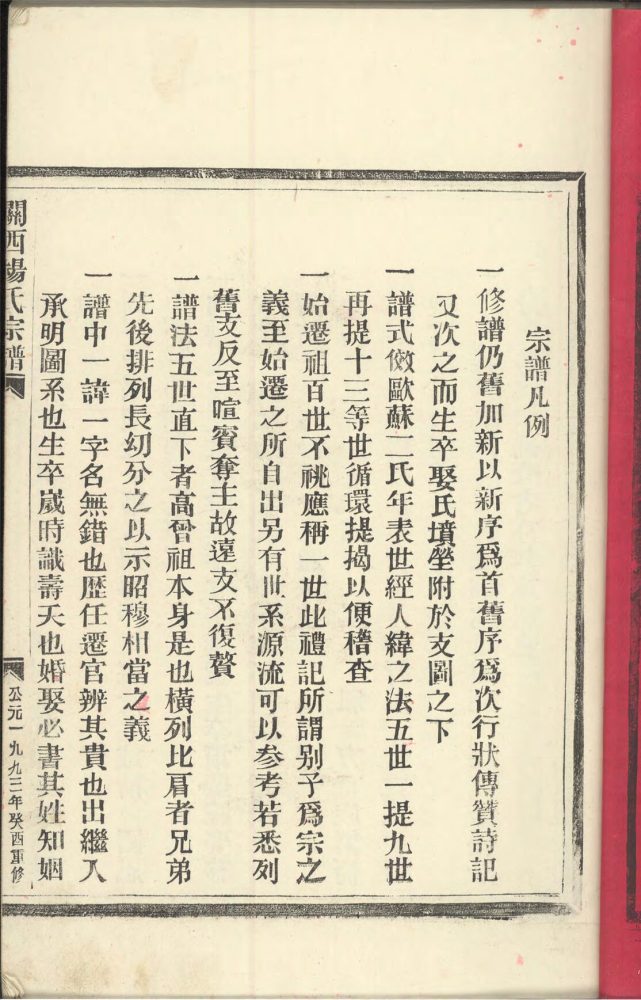 宗譜凡例
一修譜仍舊加新以新序爲首舊序爲次行狀傳贊詩記
又次之而生卒娶氏墳塋附於支圖之下
一譜式倣歐蘇二氏年表世經人緯之法五世一提九世
再提十三等世循環提揭以便稽查
一始遷祖百世不祧應稱一世此禮記所謂别子爲宗之
義至始遷之所自出另有世系源流可以参考若悉列
舊支反至喧賓奪主故遠支不復贅
一譜法五世直下者高曾祖本身是也橫列比肩者兄弟
先後排列長幼分之以示昭穆相當之義
一譜中一諱一字名無錯也歴任遷官辨其貴也出繼入
承明圖系也生卒歲時識壽夭也婚娶必書其姓知姻
關西楊氏宗譜
公元一九九三年癸酉重修